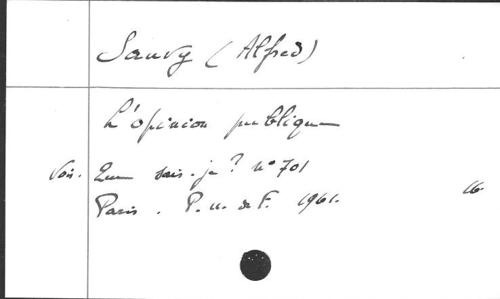 Sauvy (Alfred)
L'opinion publique
Voir. Que sais-je ? n° 701
Paris. P.U. de F. 1961. 16